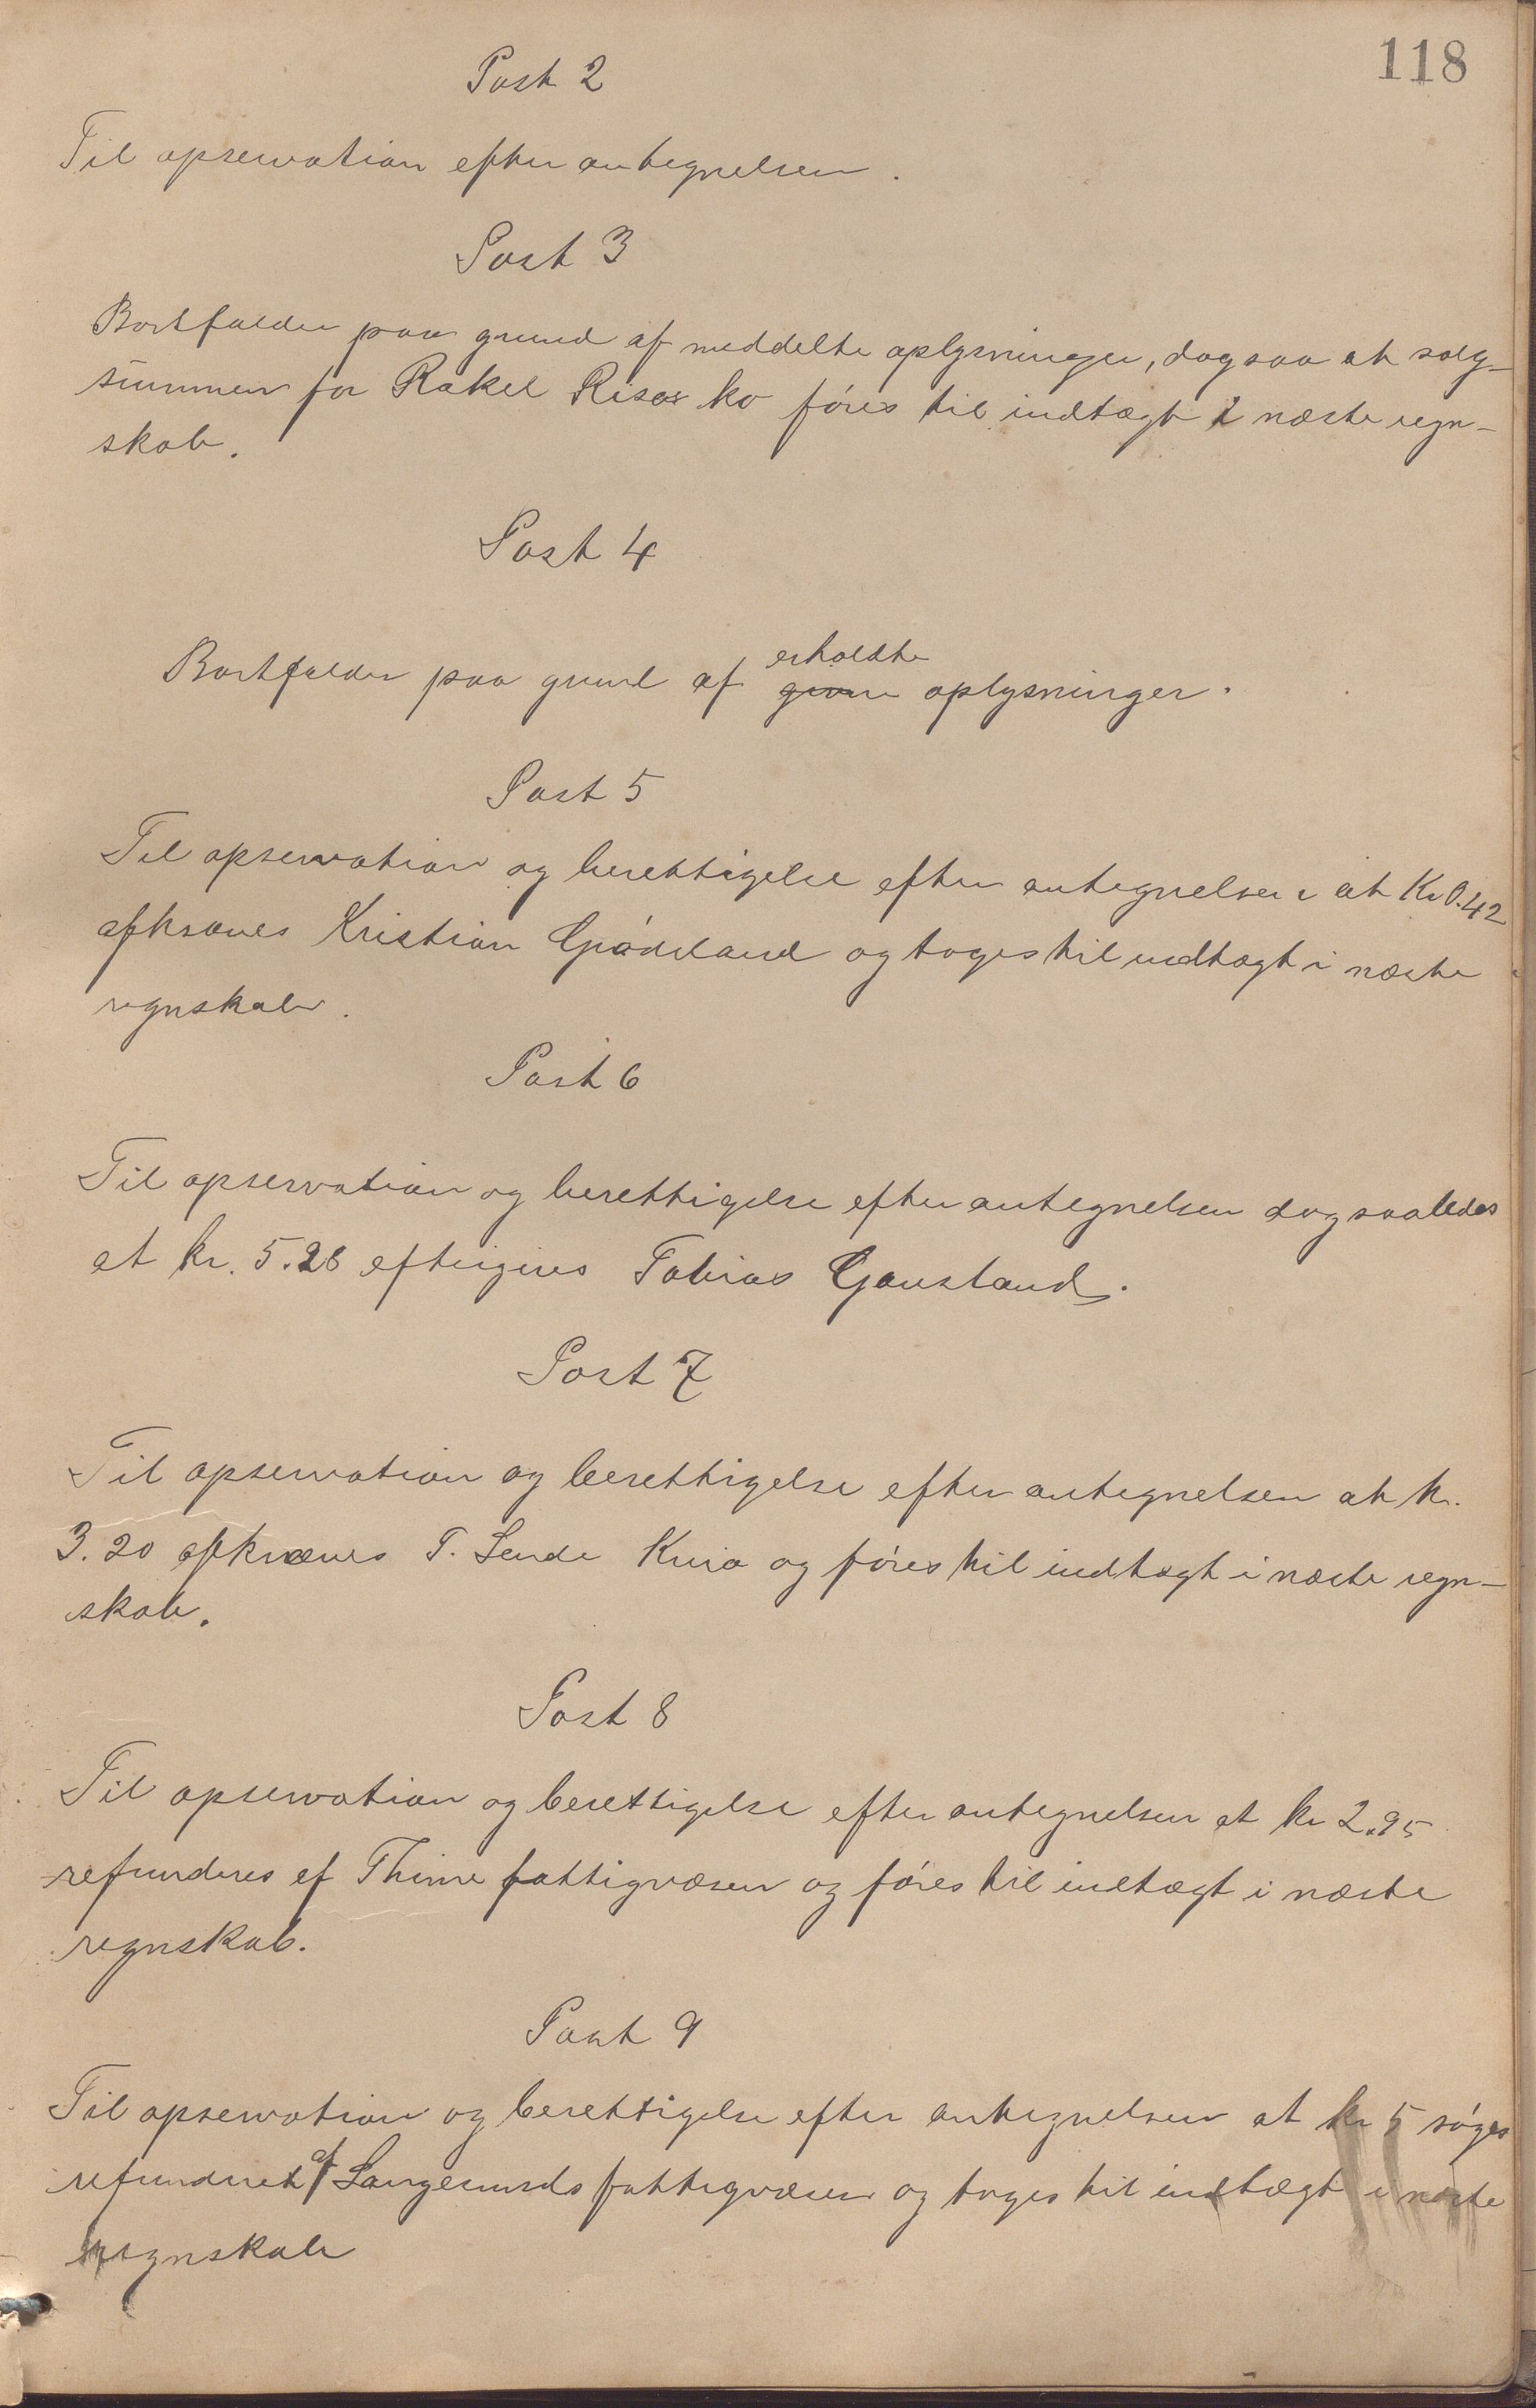 118
Post 2
Til opservation efter antegnelsen.
Post 3
Bortfalder paa grund af meddelte oplysninger, dog saa at salg-
summen for Rakel Rises ko føres til indtægt i næste regn-
skab.
Post 4
erholdte
Bortfalder paa grund af givne oplysninger.
Post 5
Til opservation og berettigelse efter antegnelsen at Kr 0.42
afkræves Kristian Grødeland og tages til indtægt i næste
regnskab.
Post 6
Til opservation og berettigelse efter antegnelsen dog saaledes
at kr. 5.28 eftergives Tobias Gausland.
Post 7
Til opservation og berettigelse efter antegnelsen at kr.
3.20 afkræves T. Lende og føres til indtægt i næste regn-
skab.
Post 8
Til opservation og berettigelse efter antegnelsen at kr 2.95
refunderes af Thime fattigvæsen og føres til indtægt i næste
regnskab.
Post 9
Til opservation og berettigelse efter antegnelsen at kr 5 søges
refunderet af Langesunds fattigvæsen og tages til indtægt i næste
regnskab